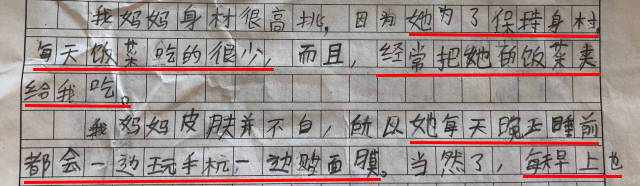 我妈妈身材很高挑，因为她为了保持身材，
每天饭菜吃的很少，而且，经常把她的饭菜夹
给我吃。
我妈妈皮肤并不白，所以她每天晚上睡前
都会一边玩手机，一边贴面膜。当然了，每天早上也